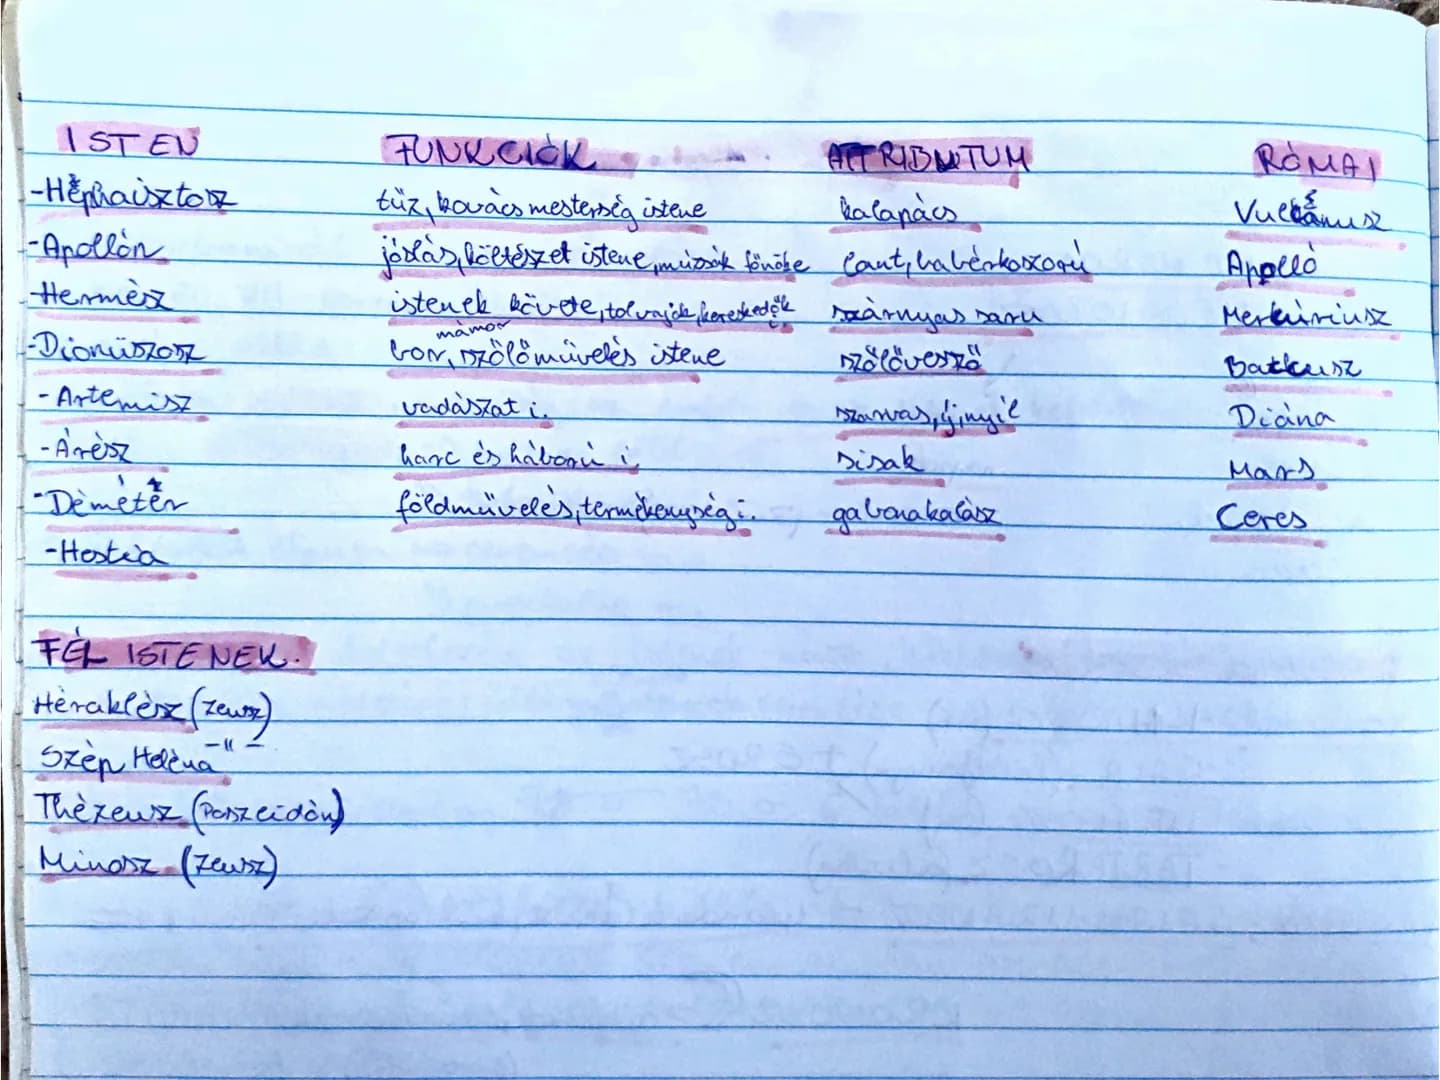 ISTEN FUNKCIÓK ATTRIBUTUM RÓMAI
-Héphaisztosz tűz, kovácsmesterség istene kalapács Vulcānusz
-Apollón jóslás, költészet istene, múzsák főnöke lant, babérkoszorú Apolló
-Hermész istenek követe, tolvajok, kereskedők i. szárnyas saru Merkúriusz
mámor
-Dionüszosz bor, szőlőművelés istene szőlővessző Batkusz
-Artemisz vadászat i. szarvas, íj, nyíl Diána
-Árész harc és háború i. sisak Mars
-Démétér földművelés, termékenység i. gabonakalász Ceres
-Hestia
FÉL ISTENEK.
Héraklész (Zeusz)
Szép Heléna -"-
Thézeusz (Poszeidón)
Minosz (Zeusz)